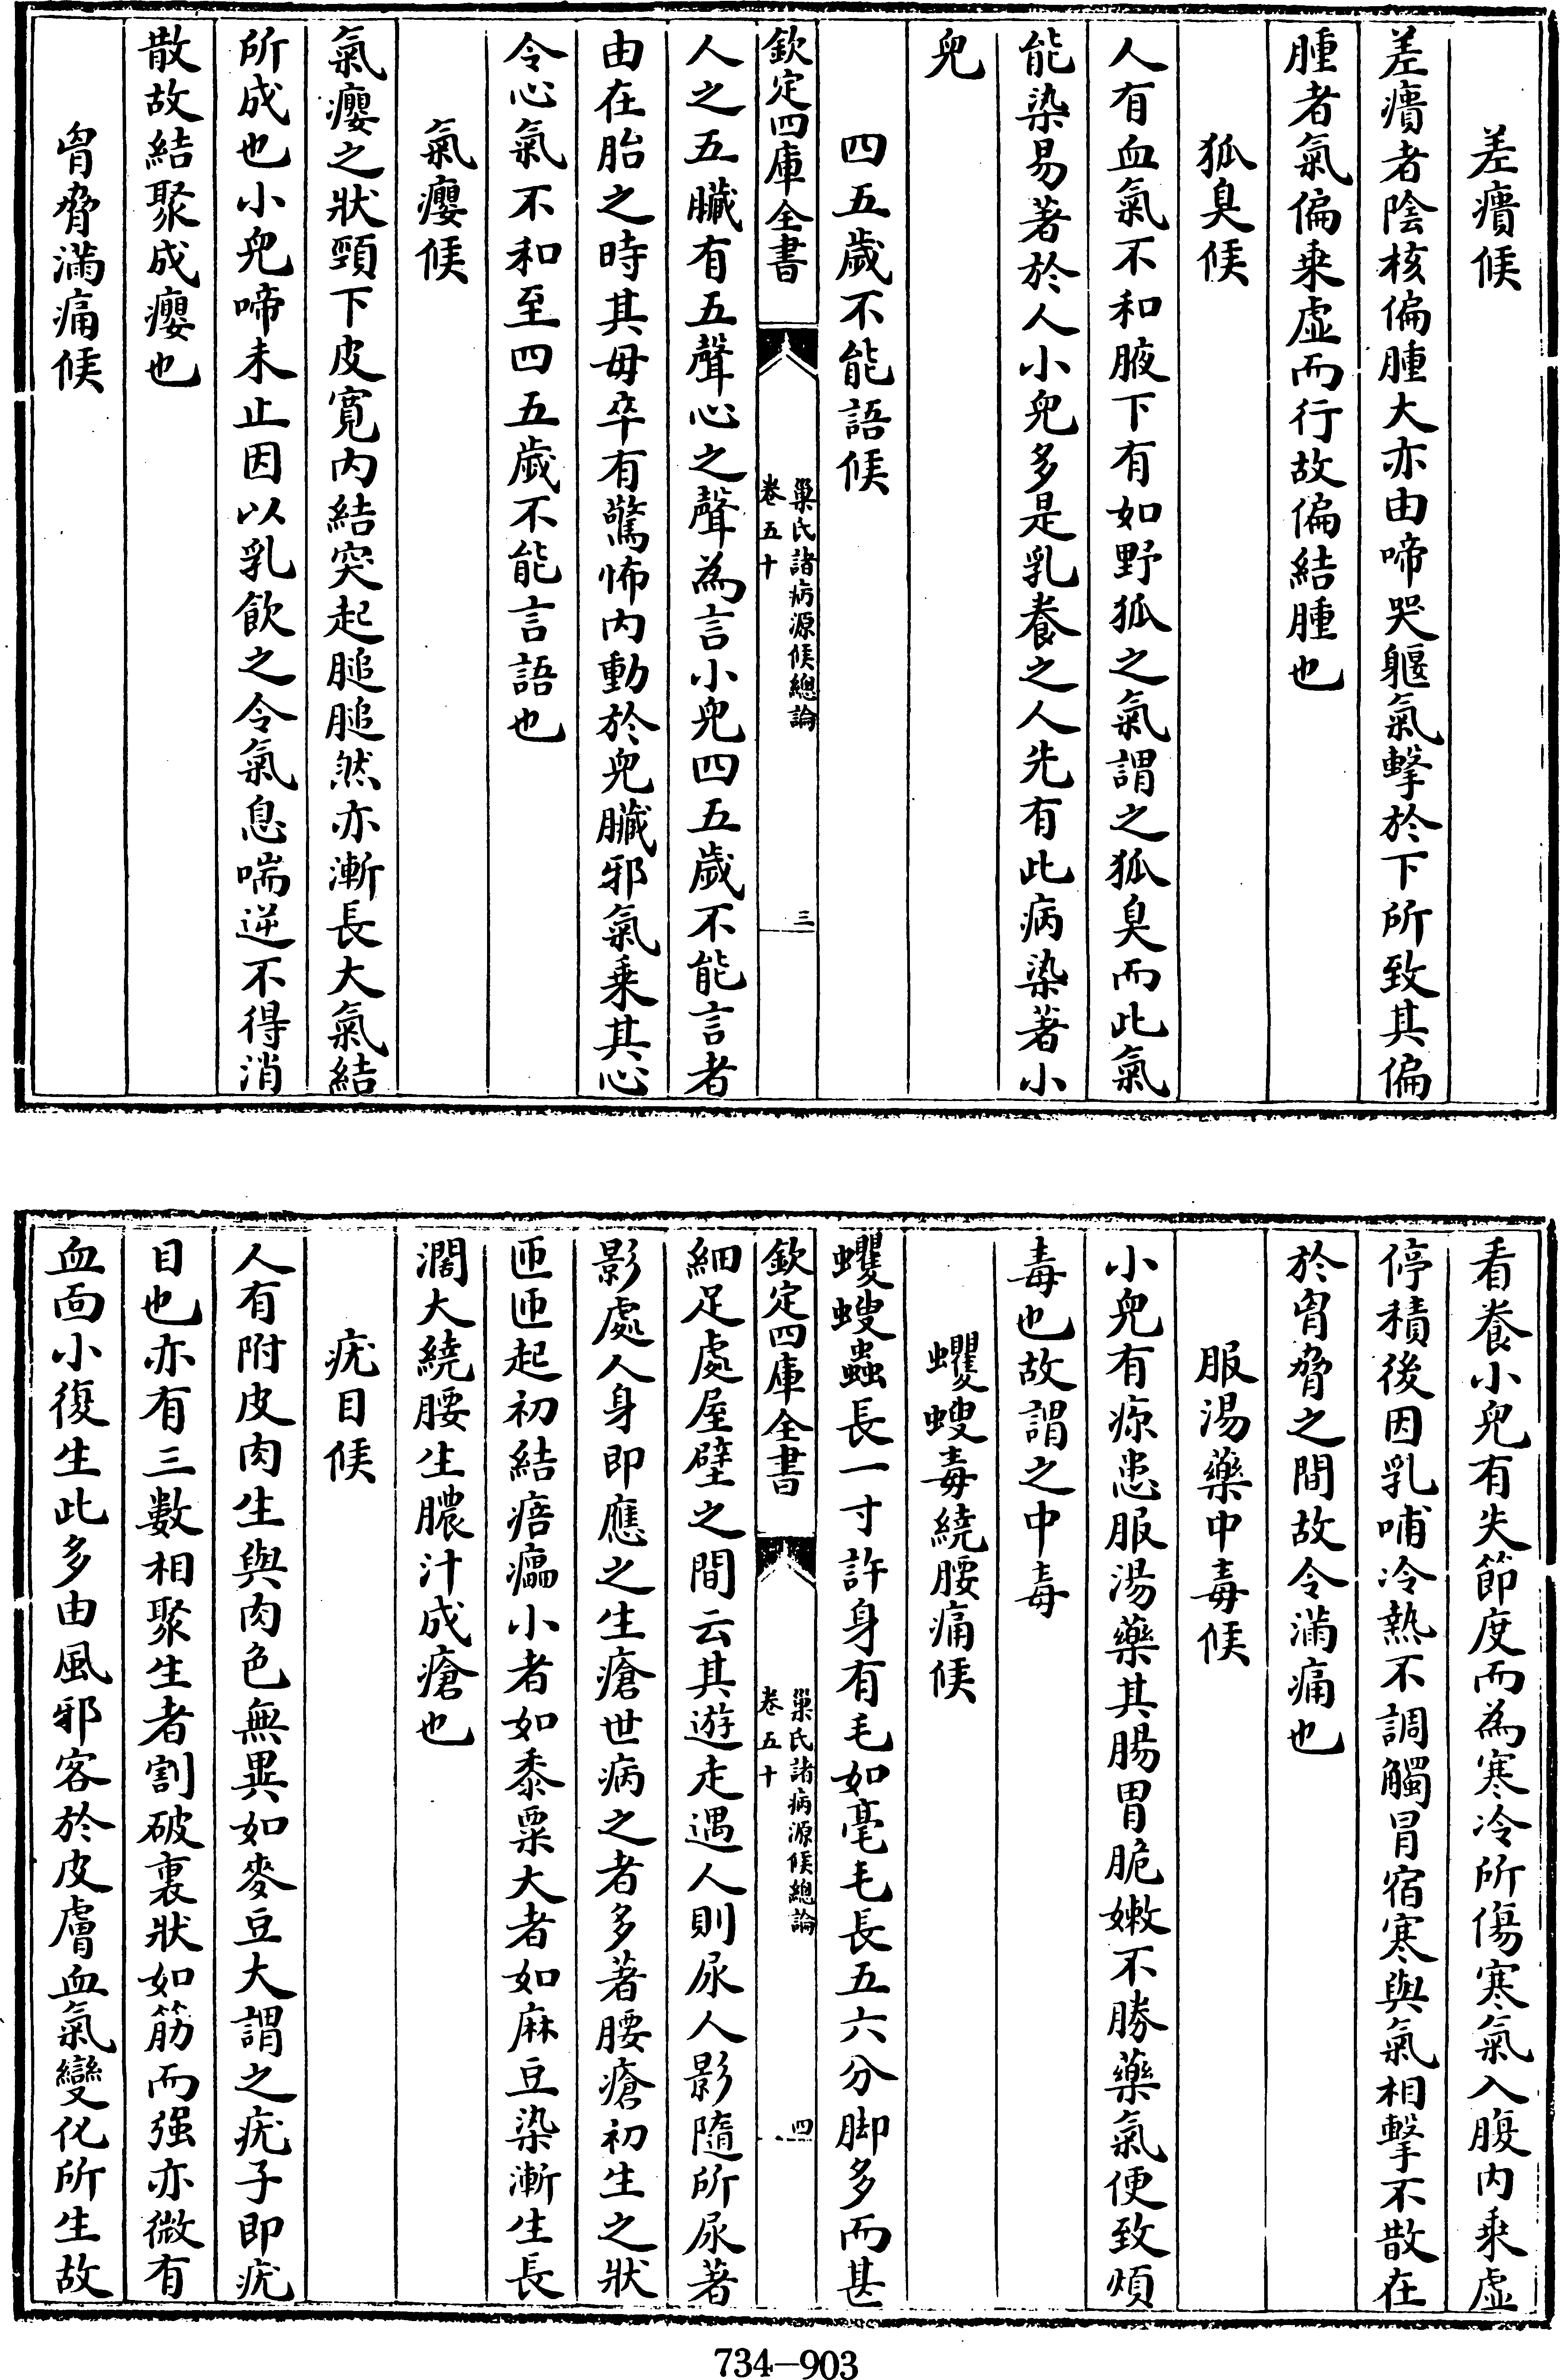 差㿉候
差㿉者陰核偏腫大亦由啼哭軀氣擊於下所致其偏
腫者氣偏乗虛而行故偏結腫也
狐臭候
人有血氣不和腋下有如野狐之氣謂之狐臭而此氣
能染易著於人小兒多是乳養之人先有此病染著小
兒
四五歲不能語候
欽定四庫全書
巢氏諸病源候總論
卷五十
三
人之五臟有五聲心之聲為言小兒四五歲不能言者
由在胎之時其母卒有驚怖内動於兒臟邪氣乗其心
令心氣不和至四五歲不能言語也
氣癭候
氣癭之狀頸下皮寬内結突起膇膇然亦漸長大氣結
所成也小兒啼未止因以乳飲之令氣息喘逆不得消
散故結聚成癭也
胷脅滿痛候
看養小兒有失節度而為寒冷所傷寒氣入腹内乗虛
停積後因乳哺冷熱不調觸冒宿寒與氣相擊不散在
於胷脅之間故令滿痛也
服湯藥中毒候
小兒有疹患服湯藥其腸胃脆嫩不勝藥氣便致煩
毒也故謂之中毒
蠼螋毒繞腰痛候
蠼螋蟲長一寸許身有毛如毫毛長五六分脚多而甚
欽定四庫全書
巢氏諸病源候總論
卷五十
四
細足處屋壁之間云其遊走遇人則尿人影隨所尿著
影處人身即應之生瘡世病之者多著腰瘡初生之狀
匝匝起初結㾦㿔小者如黍粟大者如麻豆染漸生長
濶大繞腰生膿汁成瘡也
疣目候
人有附皮肉生與肉色無異如麥豆大謂之疣子即疣
目也亦有三數相聚生者割破裏狀如筋而强亦微有
血面小復生此多由風邪客於皮膚血氣變化所生故
734—903